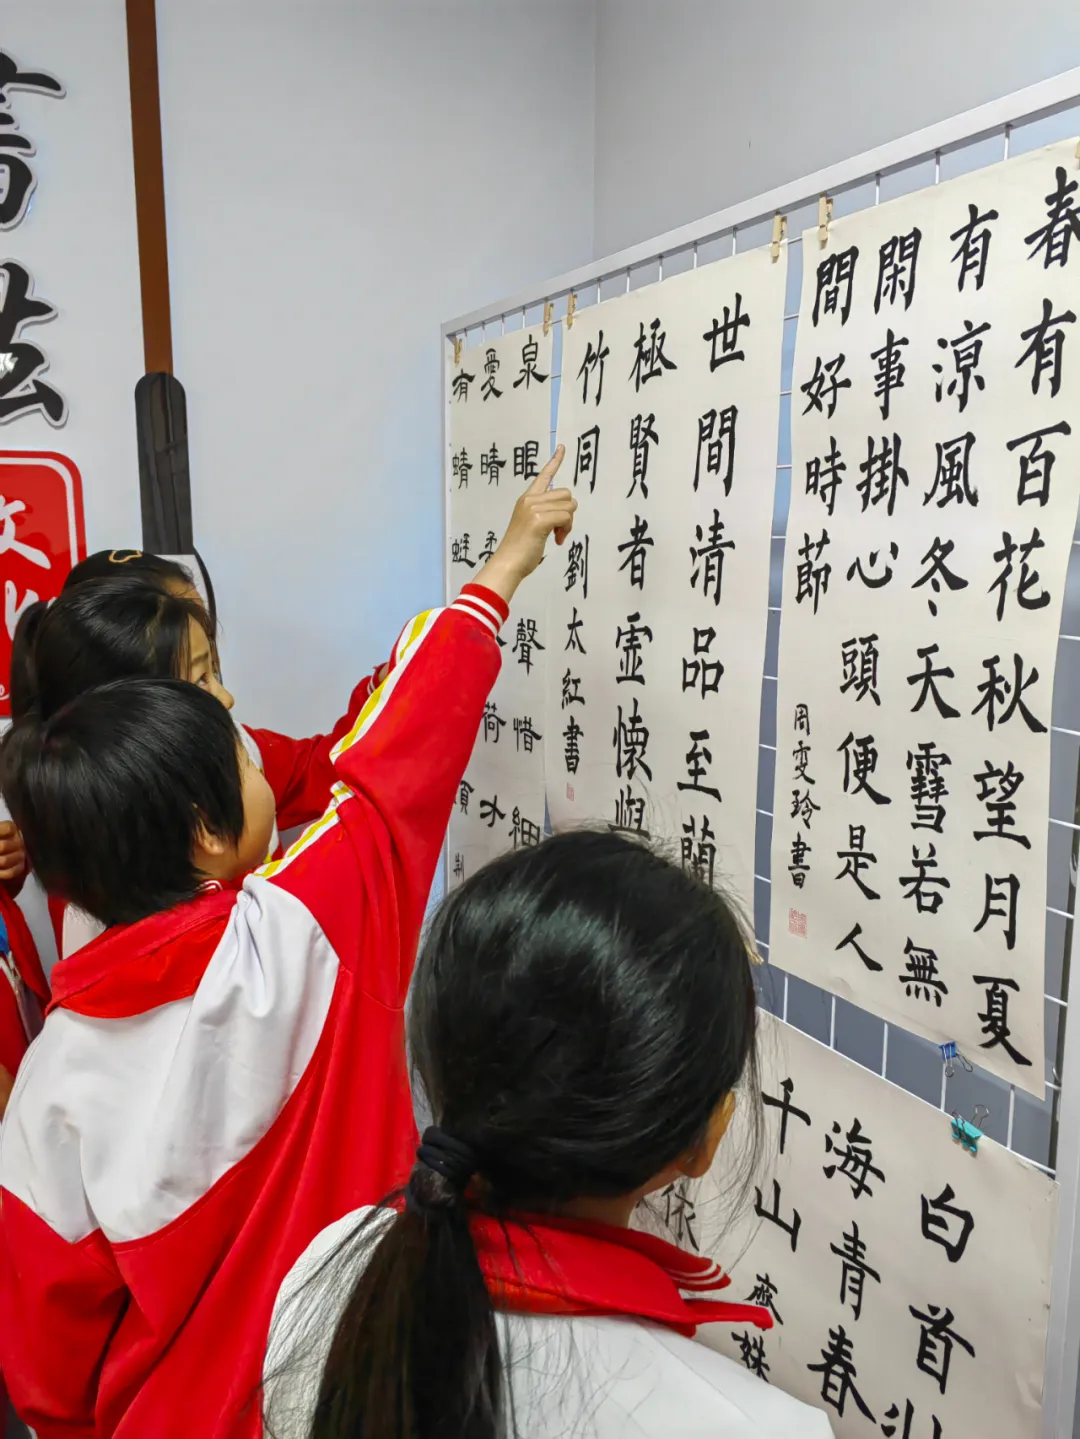 書法
文
春有百花秋望月夏
有涼風冬天雪若無
閑事掛心頭便是人
間好時節
周雯玲書
世間清品至蘭
極賢者虛懷與
竹同
劉太紅書
泉眼聲惜細
愛晴柔荷才
有蜻蜓頭
白首
海青春
千山
依